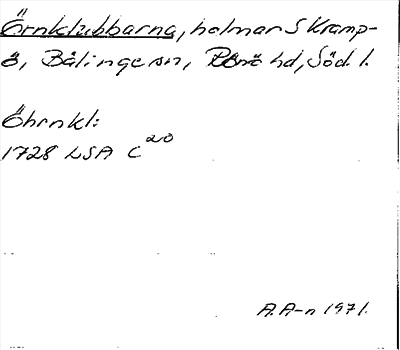 Örnklubbarna, holmar S Kramp-
ö, Bälinge sn, Rönö hd, Söd. l.
Öhrnkl:
1728 LSA C20
A.A-n 1971.